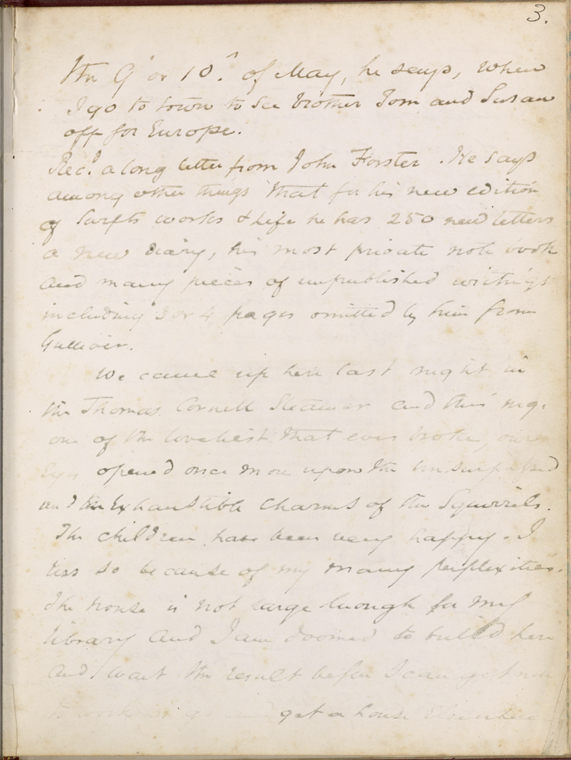 3.
the 9' or 10.^ of May, he says, when
I go to town to see brother Tom and Susan
off for Europe.
Rec.d a long letter from John Forster. He says
among other things that for his new edition
of Swifts works & Life he has 250 new letters
a new diary, his most private note book
and many pieces of unpublished writings
including 3 or 4 pages omitted by him from
Gulliver.
We came up here last night in
the Thomas Cornell Steamer and this mg.
one of the loveliest that ever broke, our
eyes opened once more upon the unsurpassed
and inexhaustible charms of the Squirrels.
The children have been very happy. I
less so because of my many perplexities.
The house is not large enough for my
library and I am doomed to build here
and wait the result before I can get
to work or get a house